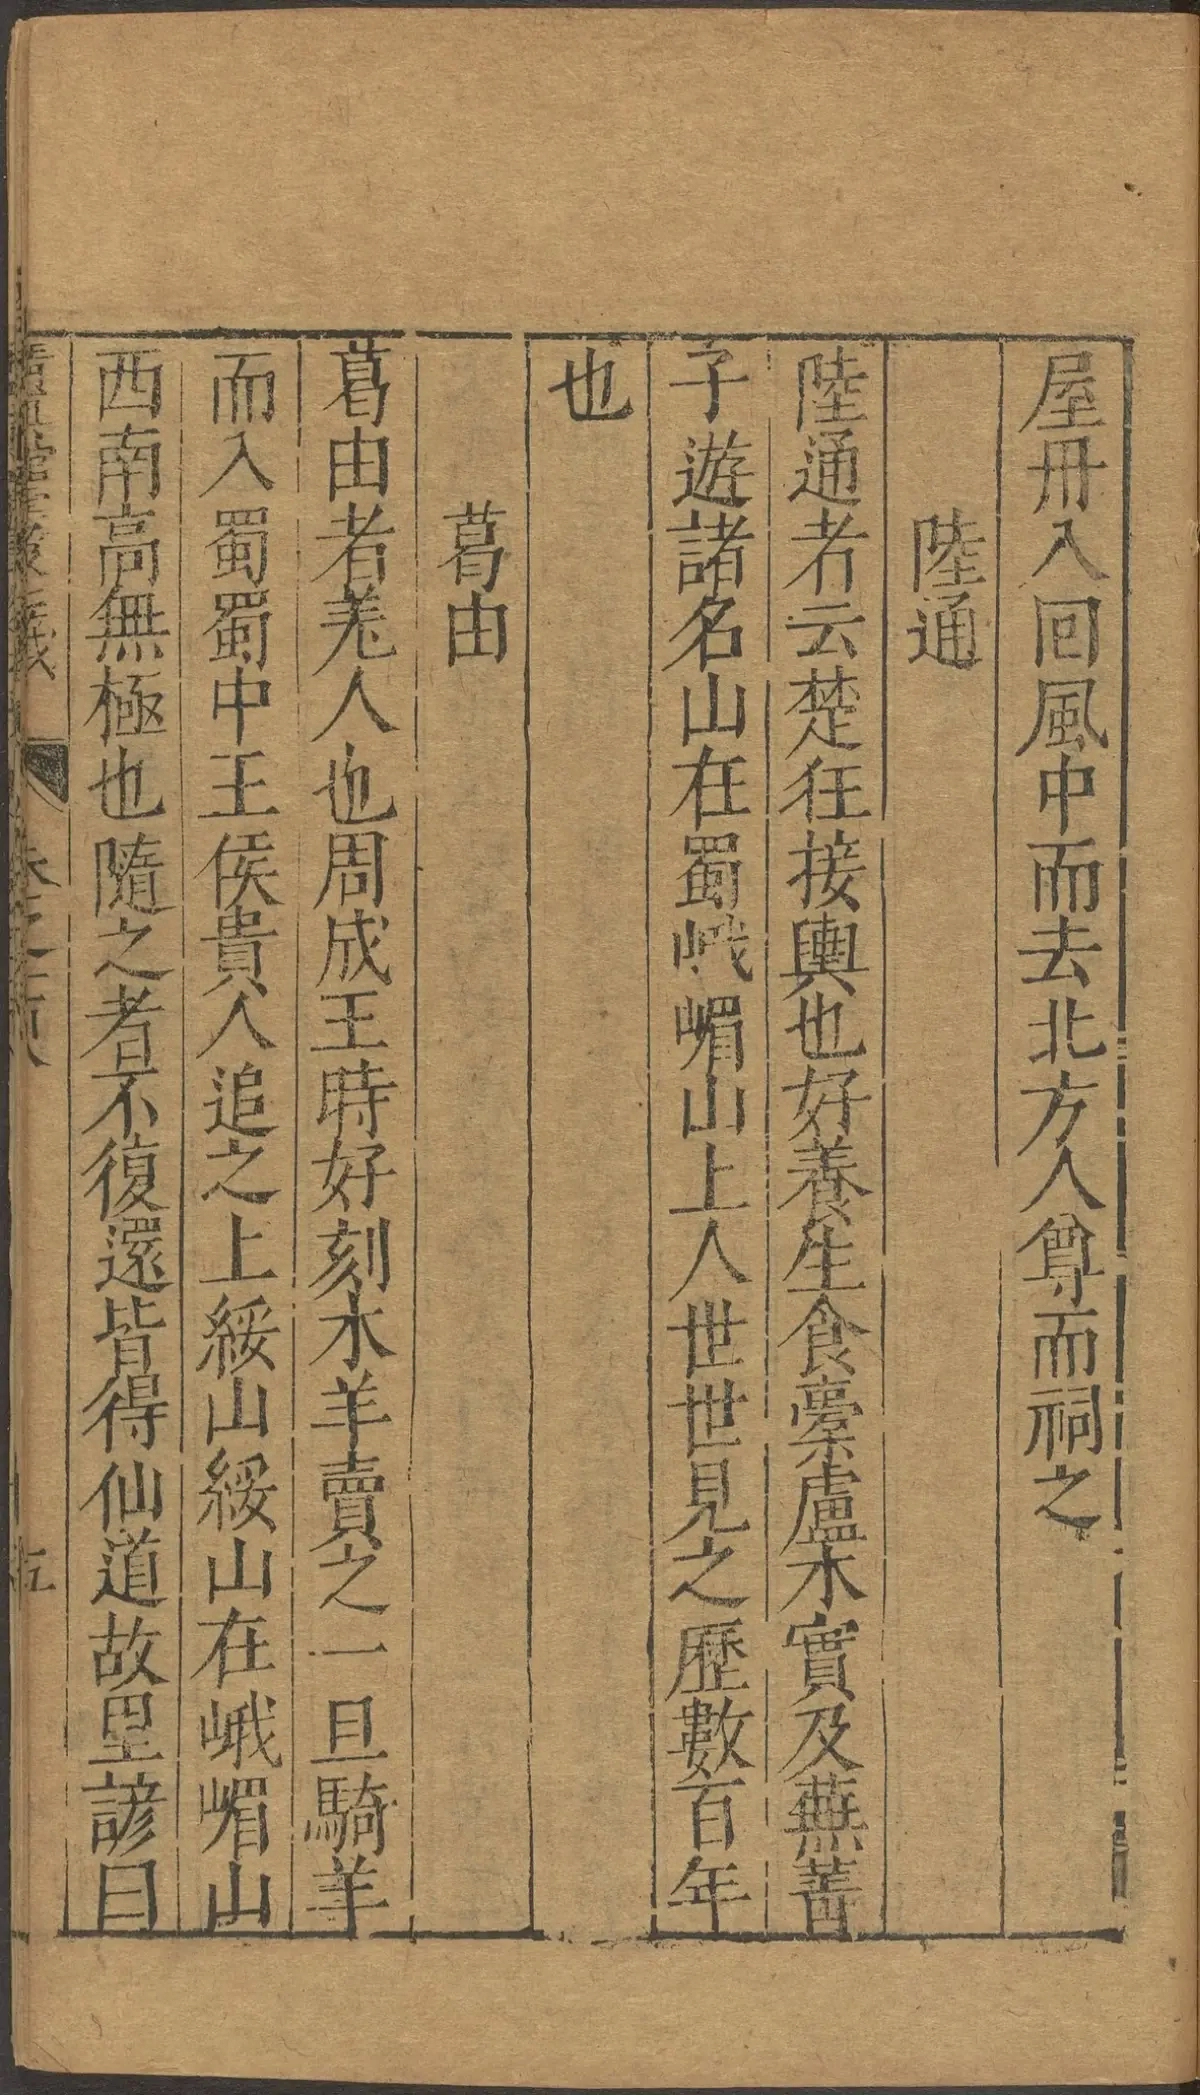 屋冊入回風中而去北方人尊而祠之
陸通
陸通者云楚狂接輿也好養生食橐盧木實及蕪菁
子遊諸名山在蜀峨嵋山上人世世見之歷數百年
也
葛由
葛由者羌人也周成王時好刻木羊賣之一旦騎羊
而入蜀蜀中王侯貴人追之上綏山綏山在峨嵋山
西南高無極也隨之者不復還皆得仙道故里諺曰
卷之百八